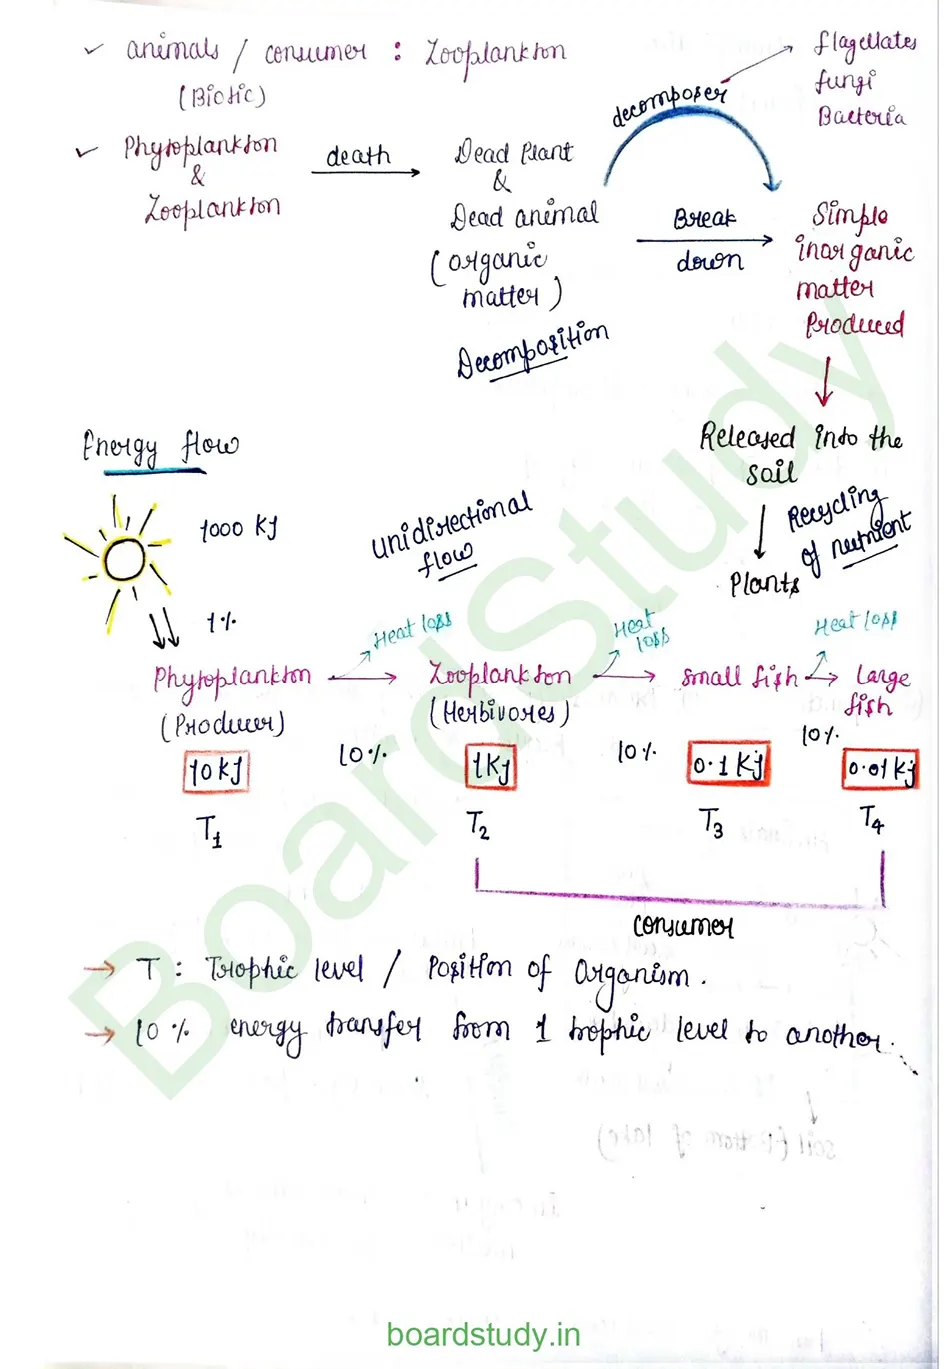 ✓ animals / consumer : Zooplankton
(Biotic)
flagellates
fungi
Bacteria
decomposer
✓ Phytoplankton
&
Zooplankton
death
Dead Plant
&
Dead animal
(organic
matter)
Decomposition
Break
down
Simple
inorganic
matter
Produced
Released into the
soil
Recycling
of nutrient
Plants
Energy flow
1000 KJ
unidirectional
flow
1%
Heat loss
Heat
loss
Heat loss
Phytoplankton → Zooplankton → small fish → Large
fish
(Producer)
(Herbivores)
10%
10%
10%
10KJ
1KJ
0.1KJ
0.01KJ
T1
T2
T3
T4
consumer
→ T : Trophic level / Position of Organism.
→ 10% energy transfer from 1 trophic level to another.
soil (bottom of lake)
BoardStudy
boardstudy.in